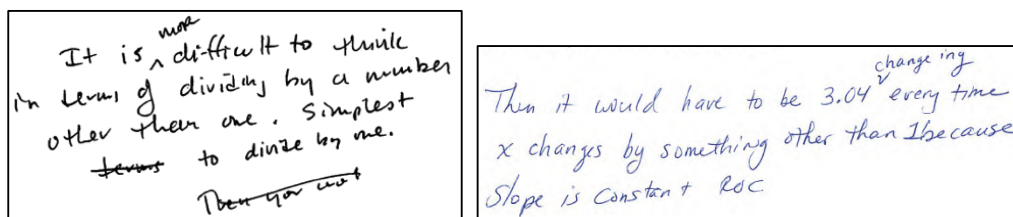 It is more difficult to think
in terms of dividing by a number
other than one. Simplest
terms to divide by one.
Then you
Then it would have to be 3.04 changeing every time
x changes by something other than 1 because
Slope is constant ROC